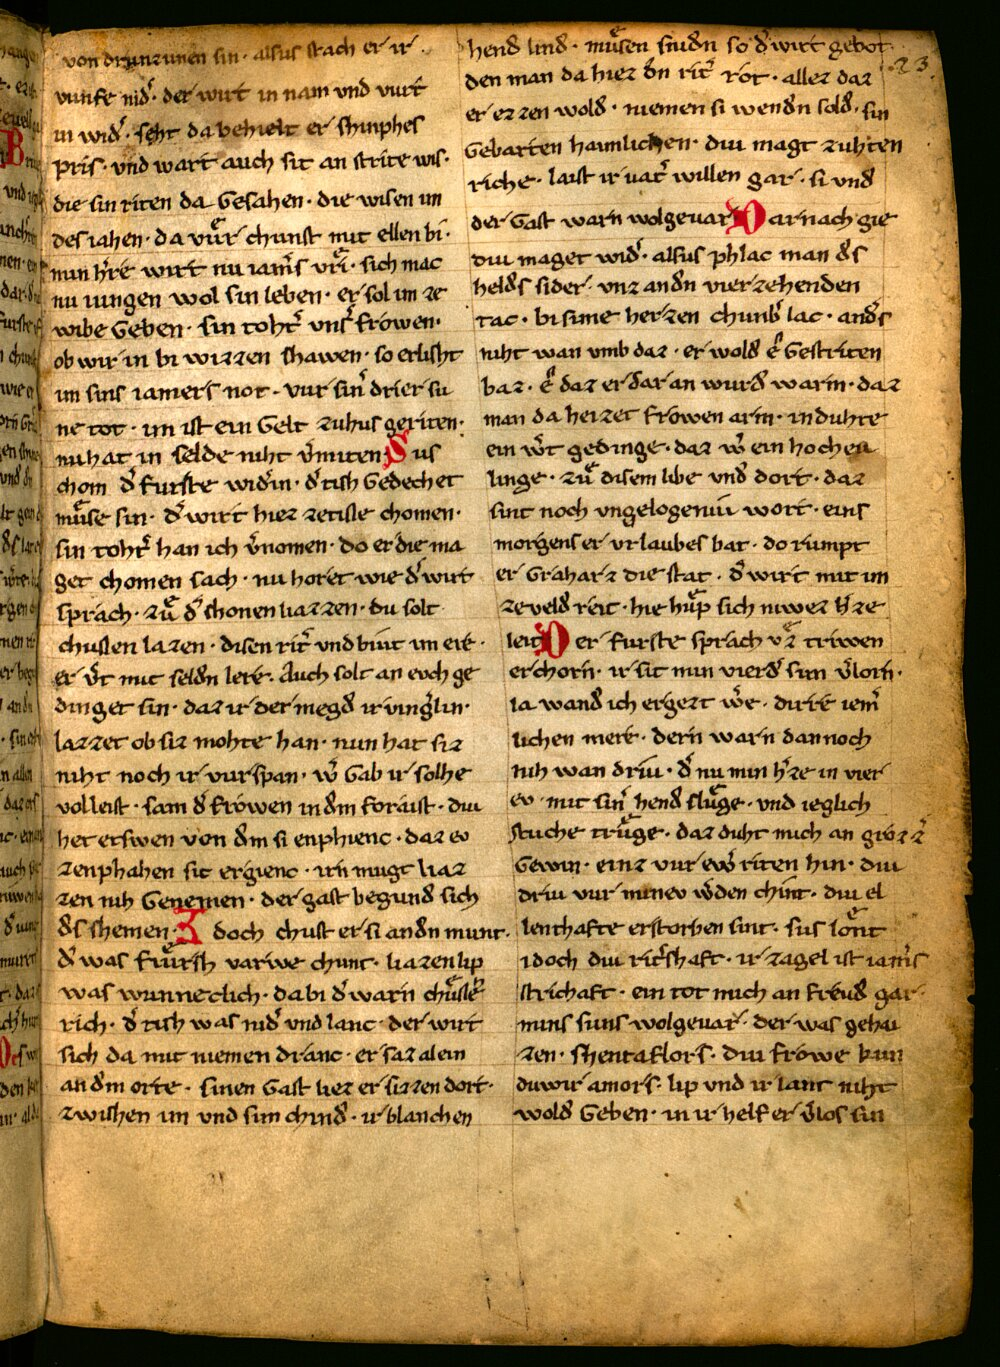 von drunzunen sin · alsus stach er ir
vunfe nid᷎ · der wirt in nam vnd vurt
in wid᷎ · seht da behielt er shinphes
pris · vnd wart auch sit an strite wis ·
die sin riten da Gesahen · die wisen im
des iahen · da vuͤr chunst mit ellen bi ·
min h᷎re wirt nu iam᷎s vri · sich mac
nu iungen wol sin leben · er sol im ze
wibe Geben · sin toht᷎ vns᷎ frowen ·
ob wir in bi wizzen shawen · so erlisht
im sins iamers not · vur sin᷎ drier su
ne tot · im ist ein Gelt zuhus geriten ·
nu hat in selde niht v᷎miten · Sus
chom d᷎ furste wid᷎ in · d᷎ tish Gedechet
muͤse sin · d᷎ wirt hiez zetisle chomen ·
sin toht᷎ han ich v᷎nomen · do er die ma
get chomen sach · nu horet wie d᷎ wirt
sprach · zuͤ d᷎ shonen liazzen · du solt
chussen lazen · disen rit᷎ vnd biut im ere ·
er v᷎t mit seldn lere · Auch solt an evch ge
dinget sin · daz ir der megd᷎ ir ving᷎lin ·
lazzet ob siz mohte han · nun hat siz
niht noch ir vurspan · w᷎ Gab ir solhe
volleist · sam d᷎ frowen in d᷎m foraist · diu
het etswen von d᷎m si enphienc · daz ev
zenphahen sit ergienc · irn mugt liaz
zen nih Genemen · der gast begund sich
d᷎s shemen · Idoch chust er si an d᷎n munt ·
d᷎ was fiwrsh varwe chunt · liazen lip
was wunneclich · da bi d᷎ warn chuͤshe
rich · d᷎ tish was nid᷎ vnd lanc · der wirt
sich da mit niemen dranc · er saz alein
an d᷎m orte · sinen Gast liez er sizzen dort ·
zwishen im vnd sim chind᷎ · ir blanchen
hend᷎ lind · muͤsen snidn so d᷎ wirt gebot ·
23 ·
den man da hiez d᷎n rit᷎ rot · allez daz
er ezzen wold᷎ · niemen si wend᷎n sold᷎ · sin
Gebarten haimlichen · diu magt zuhten
riche · laist ir vat᷎ willen gar · si vnd
der Gast warn wolgevar · Darnach gie
diu maget wid᷎ · alsus phlac man d᷎s
held᷎s sider · vnz an d᷎n vierzehenden
tac · bi sime herzen chunb᷎ lac · and᷎s
niht wan vmb daz · er wold᷎ e Gestriten
baz · e daz er dar an wurd᷎ warm · daz
man da heizet frowen arm · in duhte
ein w᷎t gedinge · daz w᷎ ein hocheu
linge · zuͤ disem libe vnd᷎ dort · daz
sint noch vngelogeniu wort · eins
morgens er vrlaubes bat · do rumpt
er Graharz die stat · d᷎ wirt mit im
zeveld᷎ reit · hie huͤp sich niwez h᷎ze
leit · Der furste sprach vz triwen
erchorn · ir sit min vierd᷎ sun v᷎lorn ·
ia wand᷎ ich ergezt w᷎e · dirre iem᷎
lichen mere · dern warn dannoch
nih wan driu · d᷎ nu min h᷎ze in vier
ev · mit sin᷎ hend᷎ sluͤge · vnd ieglich
stuche truͤge · daz duht mich an groz᷎
Gewin · einz vur ew᷎ riten hin · diu
driu vur minev w᷎den chint · diu el
lenthafte erstorben sint · sus lont
idoch diu rit᷎shaft · ir zagel ist iam᷎s
strichaft · ein tot mich an freud᷎ gar ·
mins suns wolgevar · der was gehai
zen · shentaflors · diu frowe kun
duwir amors · lip vnd ir lant niht
wold᷎ Geben · in ir helf er v᷎los sin